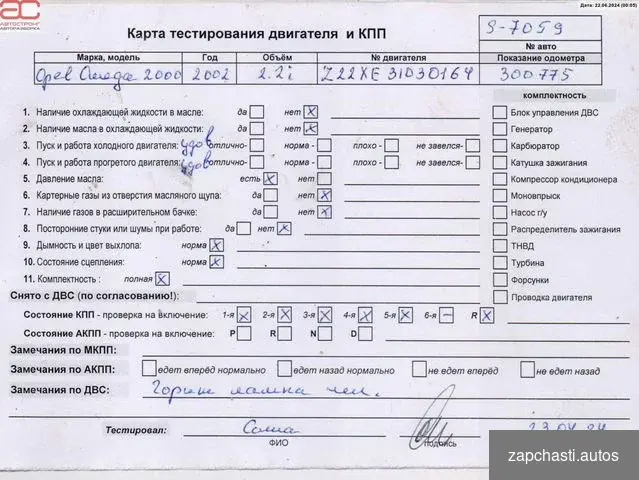 Дата: 22.06.2024 (00:05)
АС
АВТОСТРОНГ
АВТОРАЗБОРКА
Карта тестирования двигателя и КПП
S-7059
№ авто
Марка, модель Год Объём № двигателя Показание одометра
Opel Omega 2000 2002 2.2i Z22XE 31030164 300775
комплектность
1. Наличие охлаждающей жидкости в масле: да нет X Блок управления ДВС
2. Наличие масла в охлаждающей жидкости: да нет X Генератор
3. Пуск и работа холодного двигателя: удов отлично- норма - плохо - не завелся- Карбюратор
4. Пуск и работа прогретого двигателя: удов отлично- норма - плохо - не завелся- Катушка зажигания
5. Давление масла: есть X нет Компрессор кондиционера
6. Картерные газы из отверстия масляного щупа: да нет X Моновпрыск
7. Наличие газов в расширительном бачке: да нет X Насос г/у
8. Посторонние стуки или шумы при работе: да нет X Распределитель зажигания
9. Дымность и цвет выхлопа: норма X ТНВД
10. Состояние сцепления: норма X Турбина
11. Комплектность : полная X Форсунки
Снято с ДВС (по согласованию!): Проводка двигателя
Состояние КПП - проверка на включение: 1-я X 2-я X 3-я X 4-я X 5-я X 6-я – R X
Состояние АКПП - проверка на включение: P R N D
Замечания по МКПП:
Замечания по АКПП: едет вперёд нормально едет назад нормально не едет вперёд не едет назад
Замечания по ДВС: Горит лампа чек.
Тестировал: Саша
ФИО подпись
23.04.24
zapchasti.autos